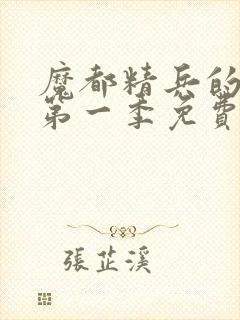 魔都精兵的
第一季免費
張芷溪